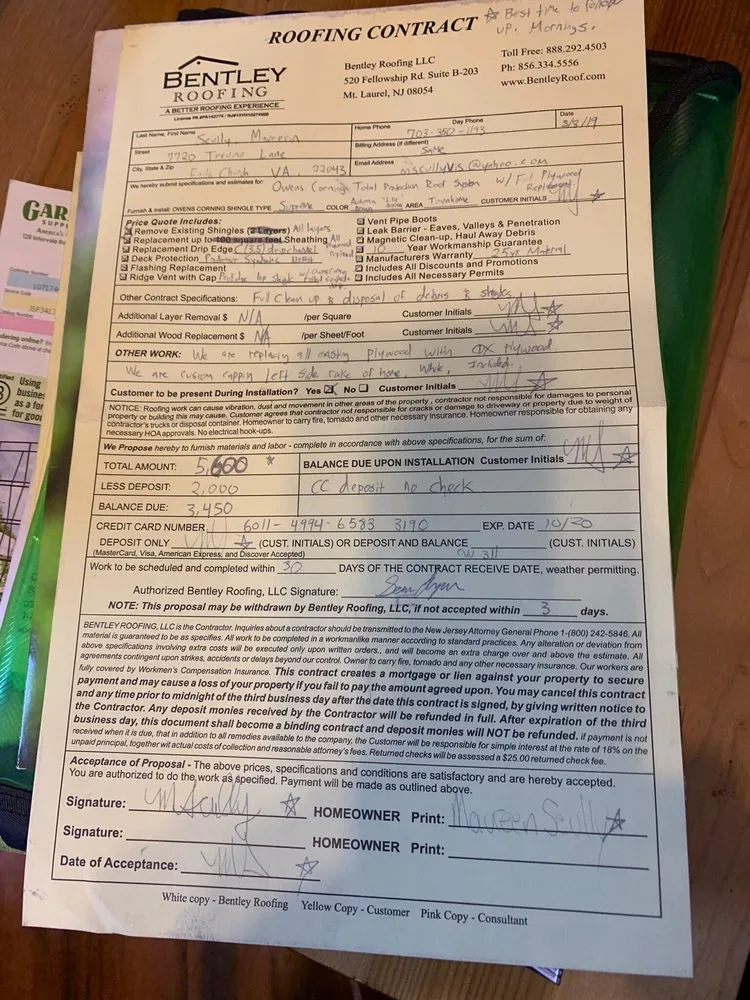 ☆ Best time to follow
up. Mornings.
ROOFING CONTRACT
BENTLEY
ROOFING
A BETTER ROOFING EXPERIENCE
Bentley Roofing LLC
520 Fellowship Rd. Suite B-203
Mt. Laurel, NJ 08054
Toll Free: 888.292.4503
Ph: 856.334.5556
www.BentleyRoof.com
Last Name, First Name Scully, Maureen
Home Phone Day Phone 703-350-1193
Date 3/8/19
Street 7720 Trevino Lane
Billing Address (if different) Same
City, State & Zip Falls Church VA. 22043
Email Address mscullyvis@yahoo.com
We hereby submit specifications and estimates for: Owens Corning's Total Protection Roof System w/ Full Plywood Replacement
Furnish & install: OWENS CORNING SHINGLE TYPE Supreme COLOR Brown AREA Townhome CUSTOMER INITIALS MS ☆
Price Quote Includes:
Remove Existing Shingles (2 Layers) All layers
Replacement up to 100 square feet Sheathing All plywood replaced
Replacement Drip Edge C (3.5) drip channel
Deck Protection Synthetic
Flashing Replacement
Ridge Vent with Cap
Vent Pipe Boots
Leak Barrier - Eaves, Valleys & Penetration
Magnetic Clean-up, Haul Away Debris
10 Year Workmanship Guarantee
Manufacturers Warranty 25yr Material
Includes All Discounts and Promotions
Includes All Necessary Permits
Other Contract Specifications: Full Clean up & disposal of debris &
Additional Layer Removal $ N/A /per Square Customer Initials MS ☆
Additional Wood Replacement $ N/A /per Sheet/Foot Customer Initials MS ☆
OTHER WORK: We are replacing all existing plywood with CDX Plywood.
We are custom capping left side rake of home, White, Included.
Customer to be present During Installation? Yes ☒ No ☐ Customer Initials MS ☆
NOTICE: Roofing work can cause vibration, dust and movement in other areas of the property, contractor not responsible for damages to personal
property or building this may cause. Customer agrees that contractor not responsible for cracks or damage to driveway or property due to weight of
contractor's trucks or disposal container. Homeowner to carry fire, tornado and other necessary insurance. Homeowner responsible for obtaining any
necessary HOA approvals. No electrical hook-ups.
We Propose hereby to furnish materials and labor - complete in accordance with above specifications, for the sum of:
TOTAL AMOUNT: 5,600 *
BALANCE DUE UPON INSTALLATION Customer Initials MS ☆
LESS DEPOSIT: 2,000
CC deposit no check
BALANCE DUE: 3,450
CREDIT CARD NUMBER [redacted] EXP. DATE [redacted]
DEPOSIT ONLY MS ☆ (CUST. INITIALS) OR DEPOSIT AND BALANCE (CUST. INITIALS)
(MasterCard, Visa, American Express, and Discover Accepted) [redacted]
Work to be scheduled and completed within 30 DAYS OF THE CONTRACT RECEIVE DATE, weather permitting.
Authorized Bentley Roofing, LLC Signature:
NOTE: This proposal may be withdrawn by Bentley Roofing, LLC, if not accepted within 3 days.
BENTLEY ROOFING, LLC is the Contractor. Inquiries about a contractor should be transmitted to the New Jersey Attorney General Phone 1-(800) 242-5846. All
material is guaranteed to be as specifies. All work to be completed in a workmanlike manner according to standard practices. Any alteration or deviation from
above specifications involving extra costs will be executed only upon written orders., and will become an extra charge over and above the estimate. All
agreements contingent upon strikes, accidents or delays beyond our control. Owner to carry fire, tornado and any other necessary insurance. Our workers are
fully covered by Workmen's Compensation Insurance. This contract creates a mortgage or lien against your property to secure
payment and may cause a loss of your property if you fail to pay the amount agreed upon. You may cancel this contract
and any time prior to midnight of the third business day after the date this contract is signed, by giving written notice to
the Contractor. Any deposit monies received by the Contractor will be refunded in full. After expiration of the third
business day, this document shall become a binding contract and deposit monies will NOT be refunded. if payment is not
received when it is due, that in addition to all remedies available to the company, the Customer will be responsible for simple interest at the rate of 18% on the
unpaid principal, together wit actual costs of collection and reasonable attorney's fees. Returned checks will be assessed a $25.00 returned check fee.
Acceptance of Proposal - The above prices, specifications and conditions are satisfactory and are hereby accepted.
You are authorized to do the work as specified. Payment will be made as outlined above.
Signature: MScully ☆ HOMEOWNER Print: Maureen Scully ☆
Signature: HOMEOWNER Print:
Date of Acceptance: MS ☆
White copy - Bentley Roofing Yellow Copy - Customer Pink Copy - Consultant
GAR
SUPP
America's
128 Intervale Ro
Customer Number
Source Code
Catalog Number
dering online?
Using
busines
as a for
for goo